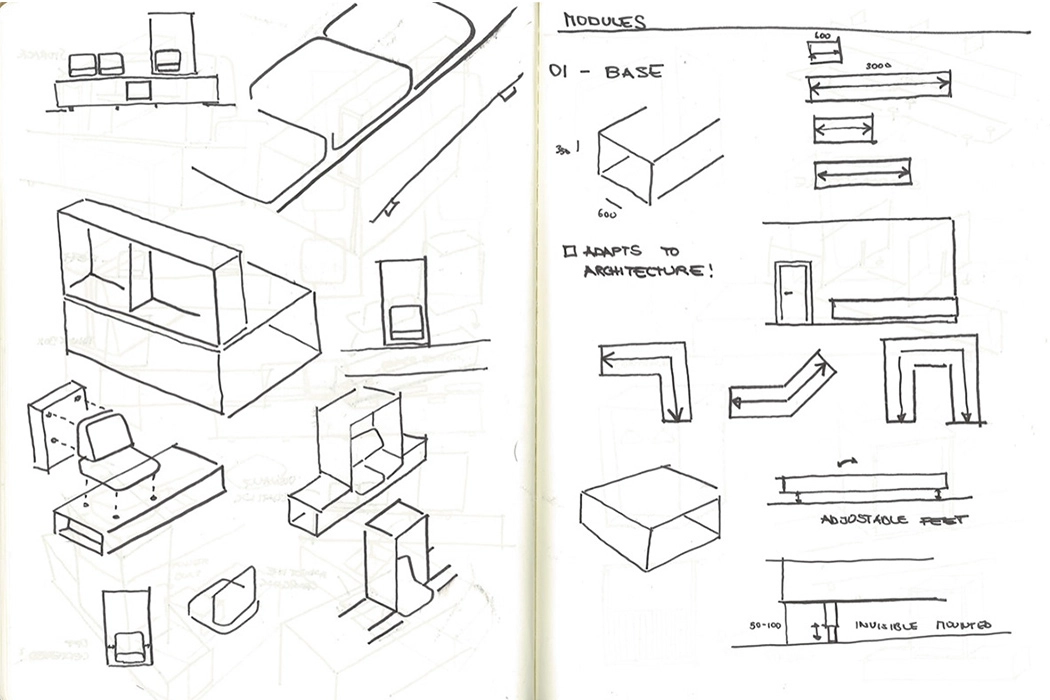 MODULES
600
01 - BASE
3000
350
600
ADAPTS TO
ARCHITECTURE!
ADJUSTABLE FEET
50-100
INVISIBLE MOUNTED